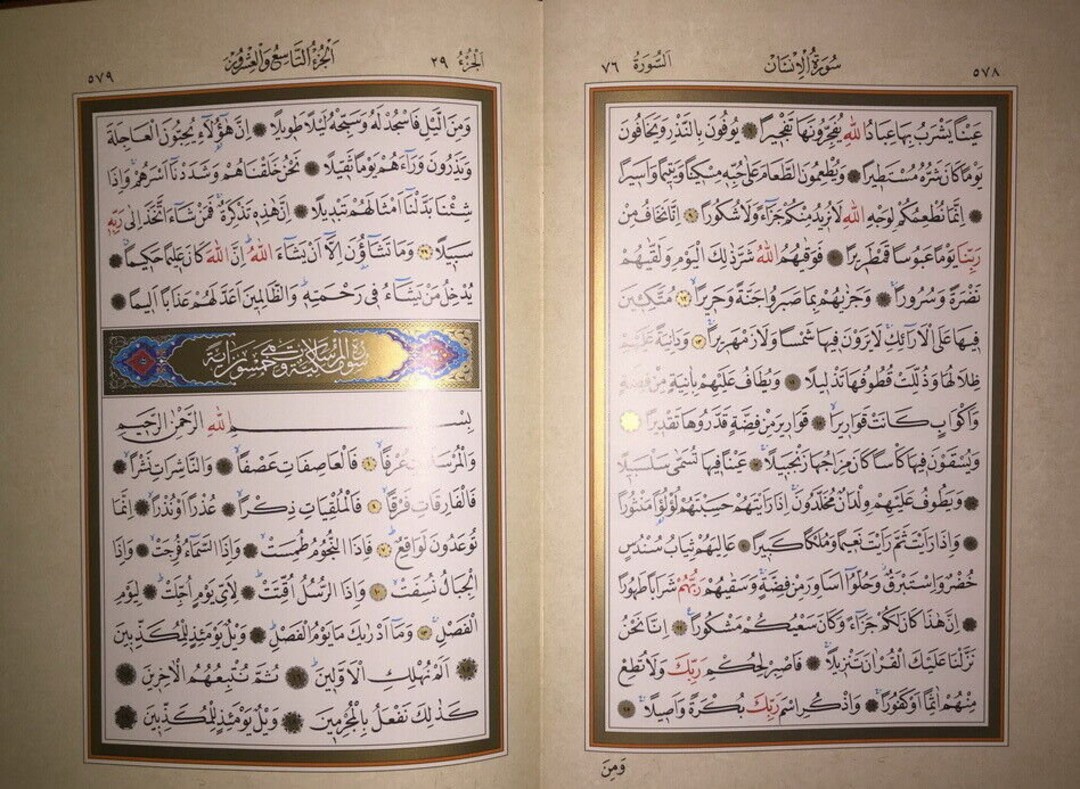 سُورَةُ الْاِنْسَانِ السُّورَةُ ٧٦
٥٧٨
عَيْنًا يَشْرَبُ بِهَا عِبَادُ اللّٰهِ يُفَجِّرُونَهَا تَفْجِيرًا يُوفُونَ بِالنَّذْرِ وَيَخَافُونَ
يَوْمًا كَانَ شَرُّهُ مُسْتَطِيرًا وَيُطْعِمُونَ الطَّعَامَ عَلٰى حُبِّهِ مِسْكِينًا وَيَتِيمًا وَاَسِيرًا
اِنَّمَا نُطْعِمُكُمْ لِوَجْهِ اللّٰهِ لَا نُرِيدُ مِنْكُمْ جَزَاءً وَلَا شُكُورًا اِنَّا نَخَافُ مِنْ
رَبِّنَا يَوْمًا عَبُوسًا قَمْطَرِيرًا فَوَقٰيهُمُ اللّٰهُ شَرَّ ذٰلِكَ الْيَوْمِ وَلَقّٰيهُمْ
نَضْرَةً وَسُرُورًا وَجَزٰيهُمْ بِمَا صَبَرُوا جَنَّةً وَحَرِيرًا مُتَّكِـِٔينَ
فِيهَا عَلَى الْاَرَائِكِ لَا يَرَوْنَ فِيهَا شَمْسًا وَلَا زَمْهَرِيرًا وَدَانِيَةً عَلَيْهِمْ
ظِلَالُهَا وَذُلِّلَتْ قُطُوفُهَا تَذْلِيلًا وَيُطَافُ عَلَيْهِمْ بِاٰنِيَةٍ مِنْ فِضَّةٍ
وَاَكْوَابٍ كَانَتْ قَوَارِيرَا قَوَارِيرَ مِنْ فِضَّةٍ قَدَّرُوهَا تَقْدِيرًا
وَيُسْقَوْنَ فِيهَا كَأْسًا كَانَ مِزَاجُهَا زَنْجَبِيلًا عَيْنًا فِيهَا تُسَمّٰى سَلْسَبِيلًا
وَيَطُوفُ عَلَيْهِمْ وِلْدَانٌ مُخَلَّدُونَ اِذَا رَاَيْتَهُمْ حَسِبْتَهُمْ لُؤْلُؤًا مَنْثُورًا
وَاِذَا رَاَيْتَ ثَمَّ رَاَيْتَ نَعِيمًا وَمُلْكًا كَبِيرًا عَالِيَهُمْ ثِيَابُ سُنْدُسٍ
خُضْرٌ وَاِسْتَبْرَقٌ وَحُلُّوا اَسَاوِرَ مِنْ فِضَّةٍ وَسَقٰيهُمْ رَبُّهُمْ شَرَابًا طَهُورًا
اِنَّ هٰذَا كَانَ لَكُمْ جَزَاءً وَكَانَ سَعْيُكُمْ مَشْكُورًا اِنَّا نَحْنُ
نَزَّلْنَا عَلَيْكَ الْقُرْاٰنَ تَنْزِيلًا فَاصْبِرْ لِحُكْمِ رَبِّكَ وَلَا تُطِعْ
مِنْهُمْ اٰثِمًا اَوْ كَفُورًا وَاذْكُرِ اسْمَ رَبِّكَ بُكْرَةً وَاَصِيلًا
وَمِنَ
اَلْجُزْءُ ٢٩ اَلْجُزْءُ التَّاسِعُ وَالْعِشْرُونَ
٥٧٩
وَمِنَ الَّيْلِ فَاسْجُدْ لَهُ وَسَبِّحْهُ لَيْلًا طَوِيلًا اِنَّ هٰؤُلَاءِ يُحِبُّونَ الْعَاجِلَةَ
وَيَذَرُونَ وَرَاءَهُمْ يَوْمًا ثَقِيلًا نَحْنُ خَلَقْنَاهُمْ وَشَدَدْنَا اَسْرَهُمْ وَاِذَا
شِئْنَا بَدَّلْنَا اَمْثَالَهُمْ تَبْدِيلًا اِنَّ هٰذِهِ تَذْكِرَةٌ فَمَنْ شَاءَ اتَّخَذَ اِلٰى رَبِّهِ
سَبِيلًا وَمَا تَشَاؤُنَ اِلَّا اَنْ يَشَاءَ اللّٰهُ اِنَّ اللّٰهَ كَانَ عَلِيمًا حَكِيمًا
يُدْخِلُ مَنْ يَشَاءُ فِى رَحْمَتِهِ وَالظَّالِمِينَ اَعَدَّ لَهُمْ عَذَابًا اَلِيمًا
سورة المرسلات مكية وهى خمسون اية
بِسْمِ اللّٰهِ الرَّحْمٰنِ الرَّحِيمِ
وَالْمُرْسَلَاتِ عُرْفًا فَالْعَاصِفَاتِ عَصْفًا وَالنَّاشِرَاتِ نَشْرًا
فَالْفَارِقَاتِ فَرْقًا فَالْمُلْقِيَاتِ ذِكْرًا عُذْرًا اَوْ نُذْرًا اِنَّمَا
تُوعَدُونَ لَوَاقِعٌ فَاِذَا النُّجُومُ طُمِسَتْ وَاِذَا السَّمَاءُ فُرِجَتْ وَاِذَا
الْجِبَالُ نُسِفَتْ وَاِذَا الرُّسُلُ اُقِّتَتْ لِاَىِّ يَوْمٍ اُجِّلَتْ لِيَوْمِ
الْفَصْلِ وَمَا اَدْرٰيكَ مَا يَوْمُ الْفَصْلِ وَيْلٌ يَوْمَئِذٍ لِلْمُكَذِّبِينَ
اَلَمْ نُهْلِكِ الْاَوَّلِينَ ثُمَّ نُتْبِعُهُمُ الْاٰخِرِينَ
كَذٰلِكَ نَفْعَلُ بِالْمُجْرِمِينَ وَيْلٌ يَوْمَئِذٍ لِلْمُكَذِّبِينَ